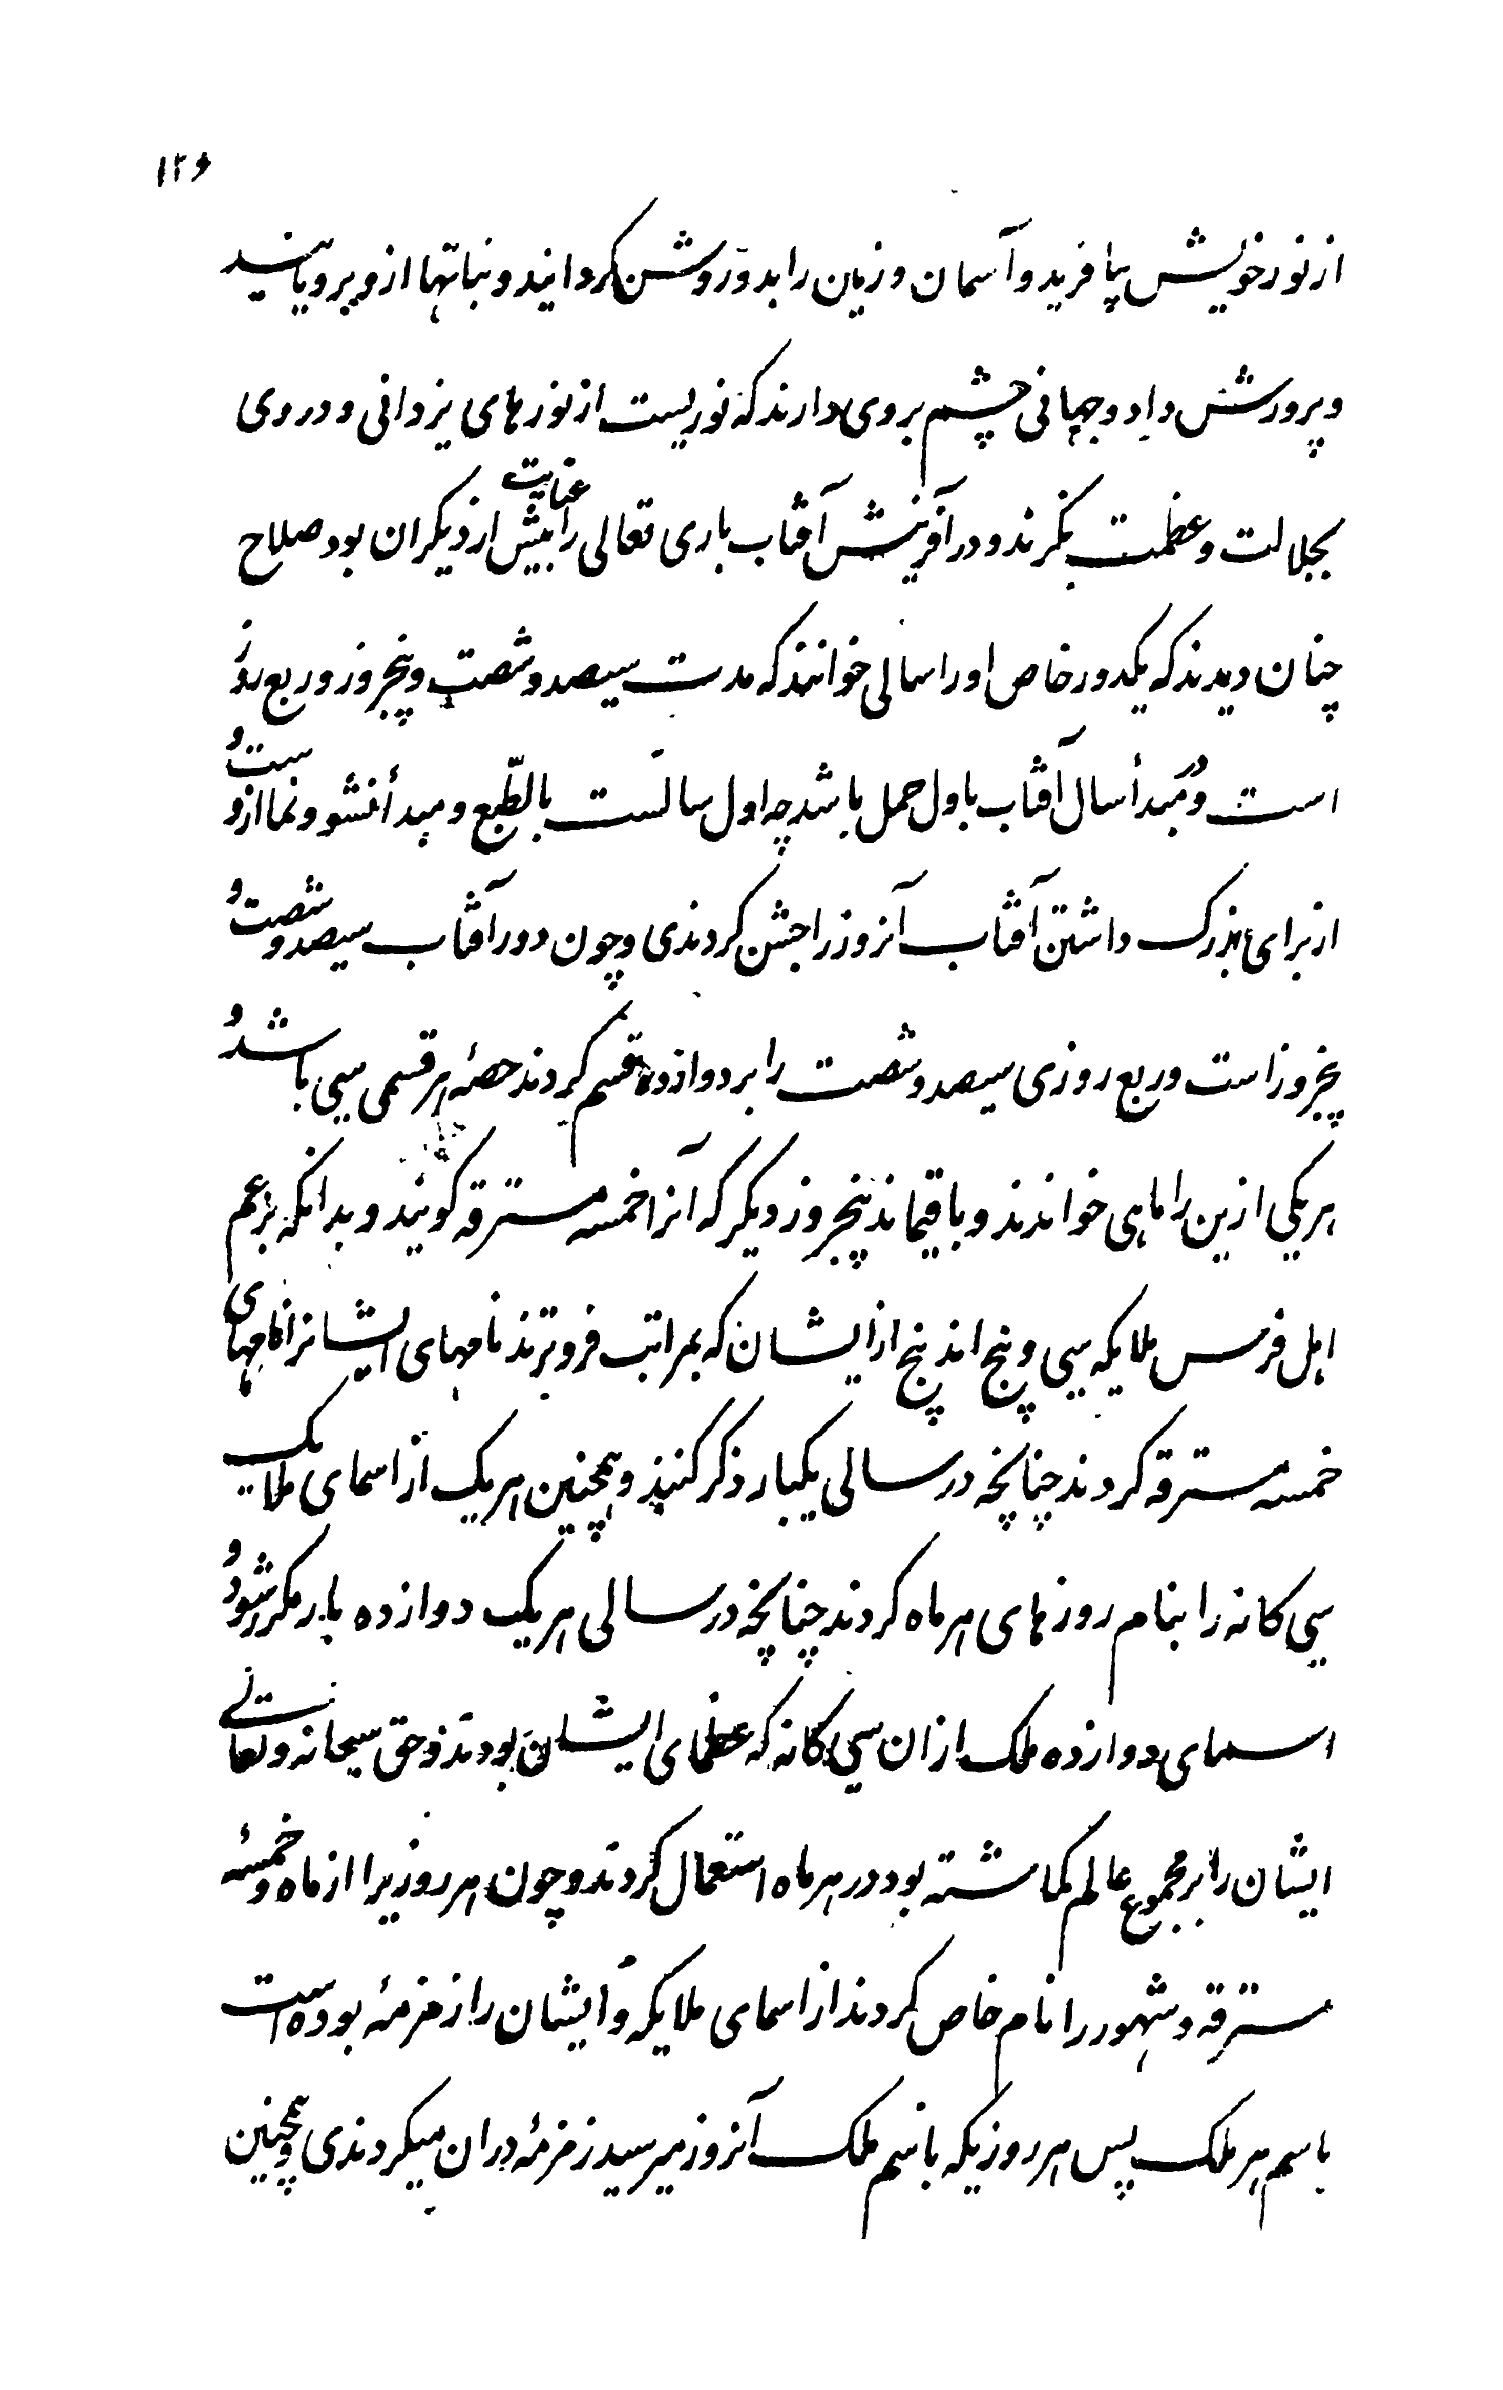 ۱۲۶
از نور خویش بیافرید و آسمان و زمین را بدو روشن کردانید و نباتها ازو برویانید
و پرورش داد و جهانی چشم بروی دارند که نوریست از نورهای یزدانی و در وی
بجلالت و عظمت نکرند و در آفرینش آفتاب باری تعالی را عنایت بیش از دیکران بود صلاح
چنان دیدند که یکدور خاص او را سالی خوانند که مدت سیصد و شصت و پنجروز و ربع روز
است و مبدأ سال آفتاب باول حمل باشد چه اول سالست بالطّبع و مبدأ نشو و نما ازوست و
از برای بزرک داشتن آفتاب آنروز را جشن کردندی و چون دور آفتاب سیصد و شصت و
پنجروز است و ربع روزی سیصد و شصت را بر دوازده قسم کردند حصهٔ هر قسمی سی باشد و
هر یکی ازین را ماهی خواندند و باقیماند پنجروز دیکر که آنرا خمسه مسترقه کویند و بدانکه بزعم
اهل فرس ملایکه سی و پنج اند پنج از ایشان که بمراتب فروترند نامهای ایشانرا نامهای
خمسه مسترقه کردند چنانچه در سالی یکبار ذکر کنند و همچنین هر یک از اسمای ملایک
سی کانه را بنام روزهای هر ماه کردند چنانچه در سالی هر یک دوازده بار مکرر شود و
اسمای دوازده ملک از ان سی کانه که عظمای ایشان بودند و حق سبحانه و تعالی
ایشان را بر مجموع عالم کماشته بود در هر ماه استعمال کردند و چون هر روزیرا از ماه و خمسهٔ
مسترقه و شهور را نام خاص کردند از اسمای ملایکه و ایشان را زمزمهٔ بوده است
باسم هر ملک پس هر روزیکه باسم ملک آنروز میرسید زمزمهٔ دران میکردندی و همچنین